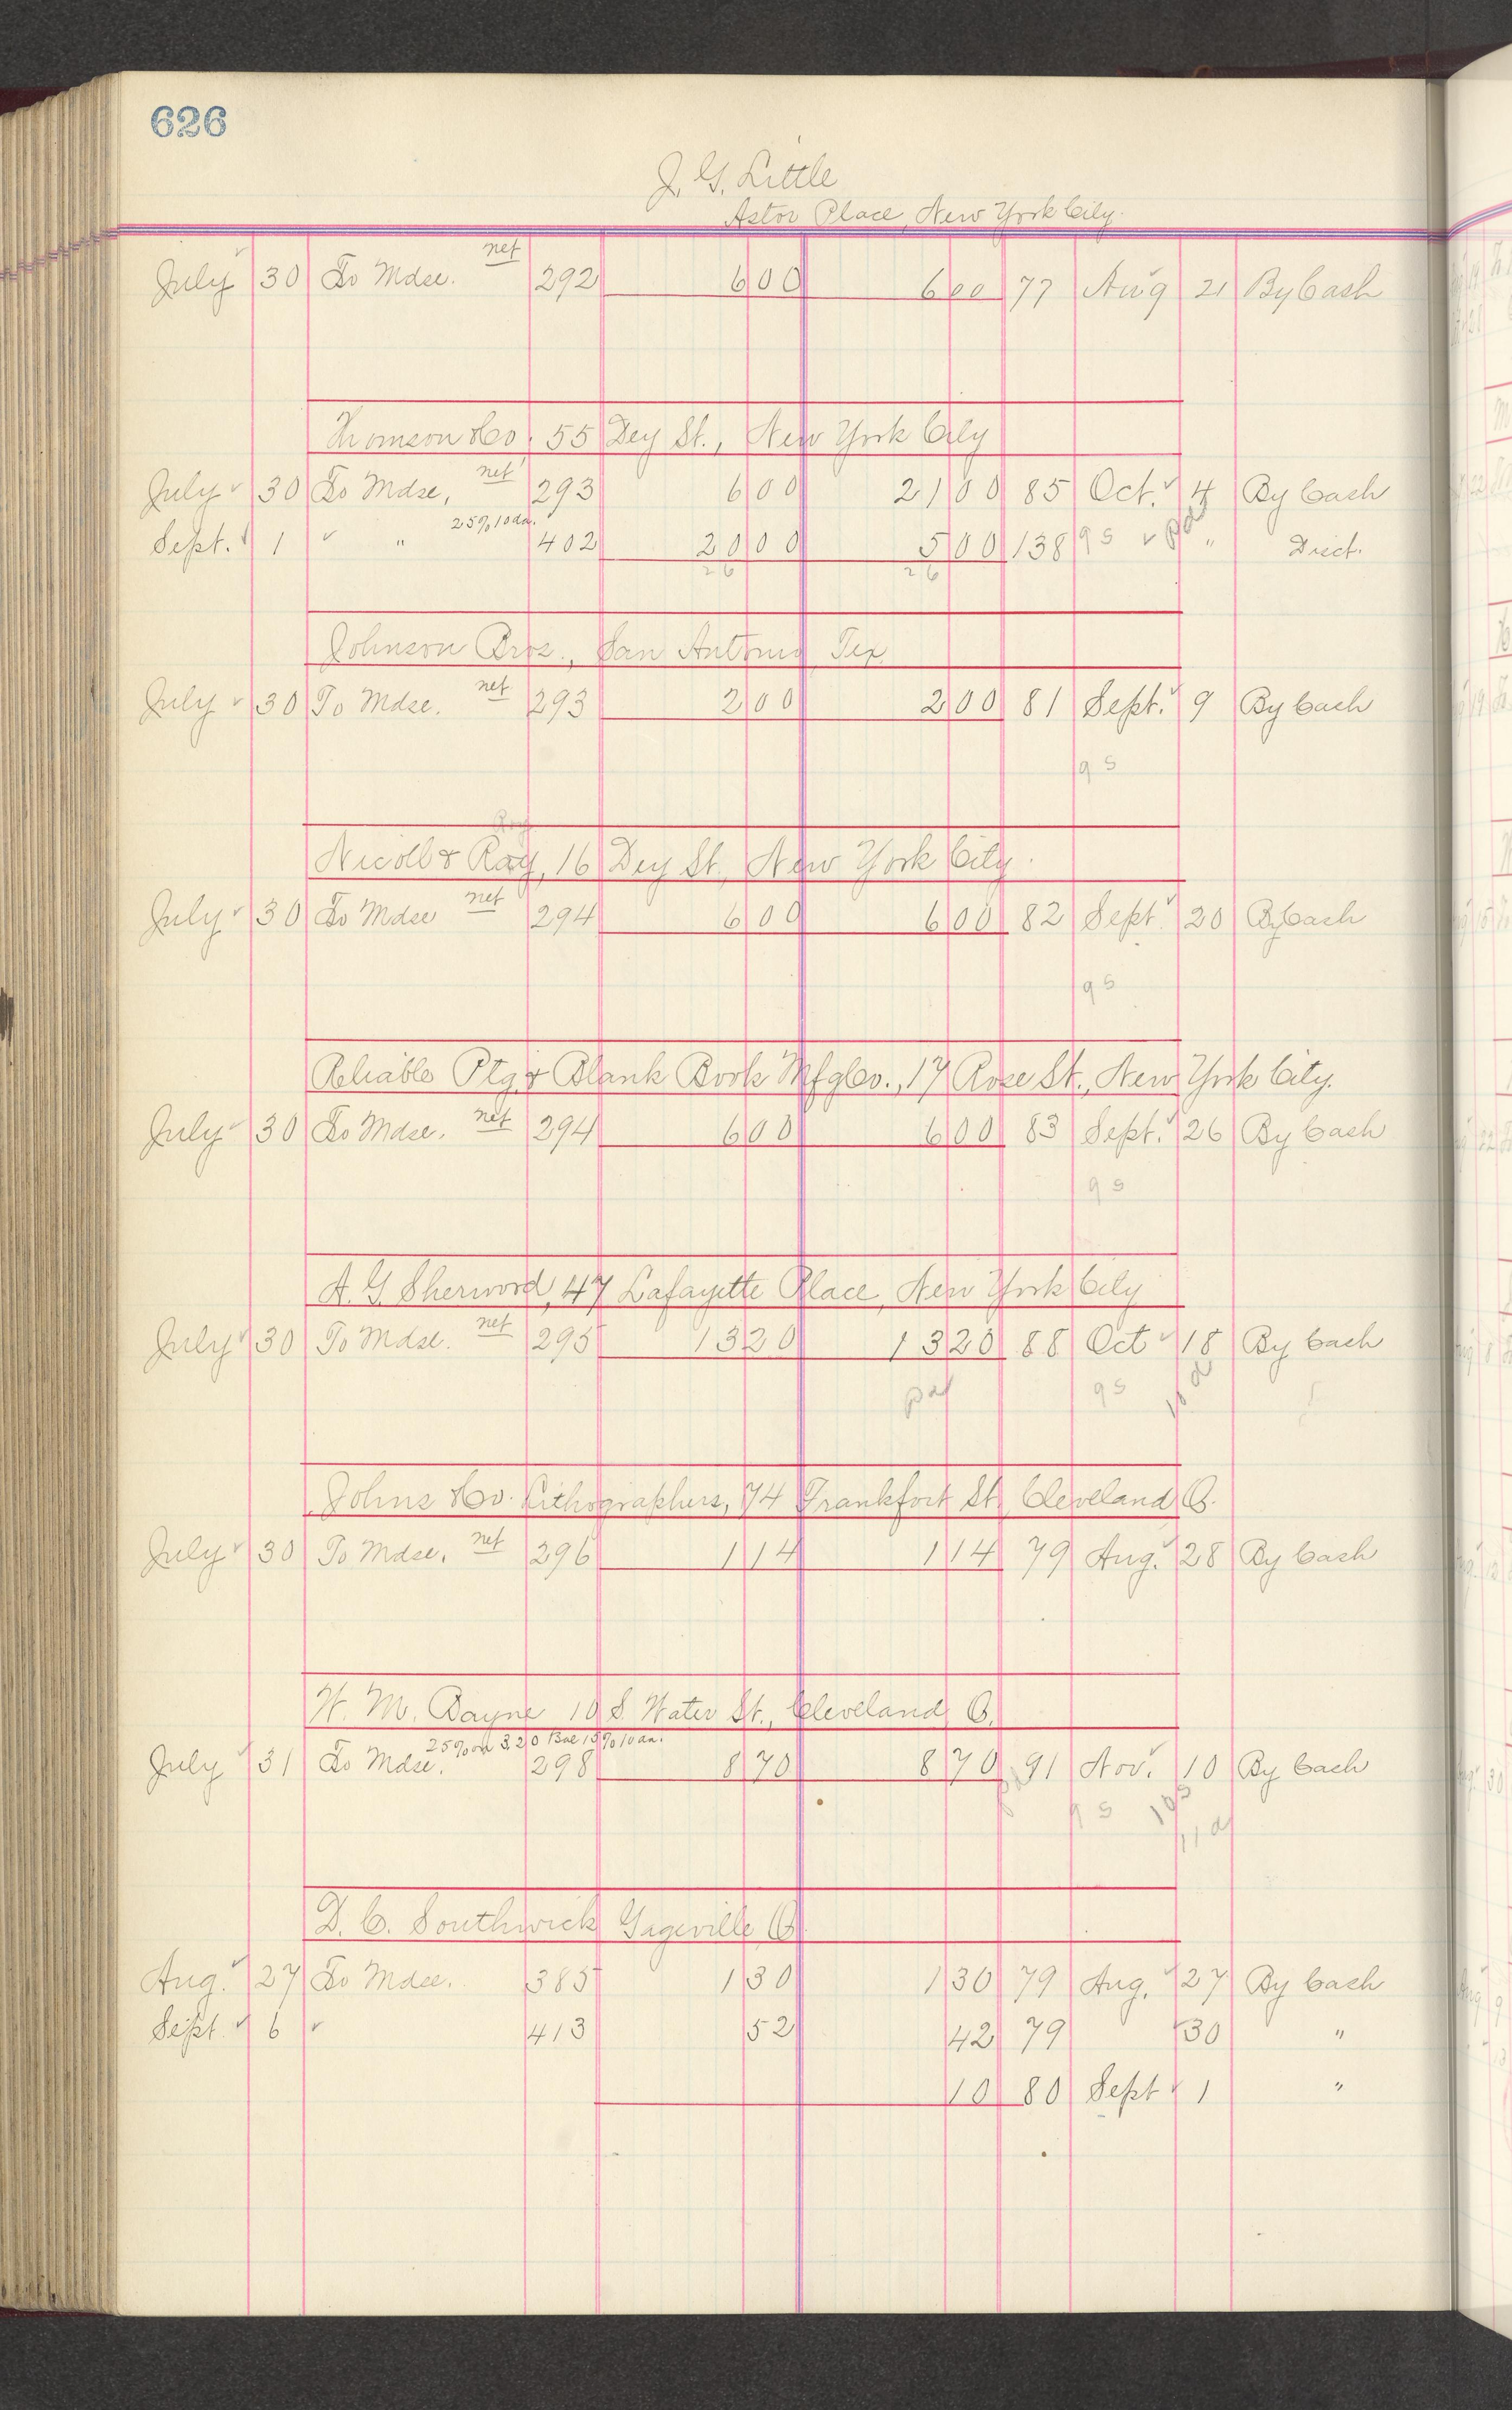 626
J. G. Little
Astor Place, New York City.
net
July 30 To Mdse. 292 600 600 77 Aug 21 By Cash
Thomson & Co. 55 Dey St., New York City
net
July 30 To Mdse, 293 600 2100 85 Oct. 4 By Cash
25% 10 da.
Sept. 1 " " 402 2000 500 138 9 5 pd " Disct.
26 26
Johnson Bros., San Antonio, Tex
July 30 To Mdse. net 293 200 200 81 Sept. 9 By Cash
9 5
Ray
Nicoll & Roy, 16 Dey St., New York City.
July 30 To Mdse net 294 600 600 82 Sept. 20 By Cash
9 5
Reliable Ptg. & Blank Book Mfg Co., 17 Rose St., New York City.
July 30 To Mdse. net 294 600 600 83 Sept. 26 By Cash
9 5
A. G. Sherwood, 47 Lafayette Place, New York City
July 30 To Mdse. net 295 1320 1320 88 Oct 18 By Cash
pd 9 5
Johns & Co. Lithographers, 74 Frankfort St. Cleveland O.
July 30 To Mdse. net 296 114 114 79 Aug. 28 By Cash
W. M. Bayne 10 S. Water St., Cleveland O.
25% on 3.20 Bal 15% 10 da.
July 31 To Mdse. 298 870 870 91 Nov. 10 By Cash
9 5 10 5
D. C. Southwick Gageville O.
Aug. 27 To Mdse. 385 130 130 79 Aug. 27 By Cash
Sept. 6 " 413 52 42 79 30 "
10 80 Sept 1 "